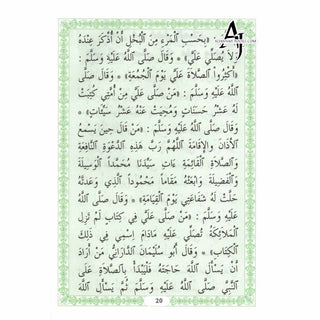 «بِحَسْبِ ٱلْمَرْءِ مِنَ ٱلْبُخْلِ أَنْ أُذْكَرَ عِنْدَهُ
وَلَا يُصَلِّيَ عَلَيَّ» * وَقَالَ صَلَّى ٱللَّهُ عَلَيْهِ وَسَلَّمَ :
«أَكْثِرُوا ٱلصَّلَاةَ عَلَيَّ يَوْمَ ٱلْجُمُعَةِ» * وَقَالَ صَلَّى
ٱللَّهُ عَلَيْهِ وَسَلَّمَ : «مَنْ صَلَّى عَلَيَّ مِنْ أُمَّتِي كُتِبَتْ
لَهُ عَشْرُ حَسَنَاتٍ وَمُحِيَتْ عَنْهُ عَشْرُ سَيِّئَاتٍ» *
وَقَالَ صَلَّى ٱللَّهُ عَلَيْهِ وَسَلَّمَ : «مَنْ قَالَ حِينَ يَسْمَعُ
ٱلْأَذَانَ وَٱلْإِقَامَةَ ٱللَّهُمَّ رَبَّ هَذِهِ ٱلدَّعْوَةِ ٱلنَّافِعَةِ
وَٱلصَّلَاةِ ٱلْقَائِمَةِ ءَاتِ سَيِّدَنَا مُحَمَّداً ٱلْوَسِيلَةَ
وَٱلْفَضِيلَةَ وَٱبْعَثْهُ مَقَاماً مَحْمُوداً ٱلَّذِي وَعَدتَّهُ
حَلَّتْ لَهُ شَفَاعَتِي يَوْمَ ٱلْقِيَامَةِ» * وَقَالَ صَلَّى ٱللَّهُ
عَلَيْهِ وَسَلَّمَ : «مَنْ صَلَّى عَلَيَّ فِي كِتَابٍ لَمْ تَزَلِ
ٱلْمَلَائِكَةُ تُصَلِّي عَلَيْهِ مَادَامَ ٱسْمِي فِي ذَلِكَ
ٱلْكِتَابِ» * وَقَالَ أَبُو سُلَيْمَانَ ٱلدَّارَانِيُّ مَنْ أَرَادَ
أَنْ يَسْأَلَ ٱللَّهَ حَاجَتَهُ فَلْيَبْدَأْ بِٱلصَّلَاةِ عَلَى
ٱلنَّبِيِّ صَلَّى ٱللَّهُ عَلَيْهِ وَسَلَّمَ ثُمَّ يَسْأَلُ ٱللَّهَ
20